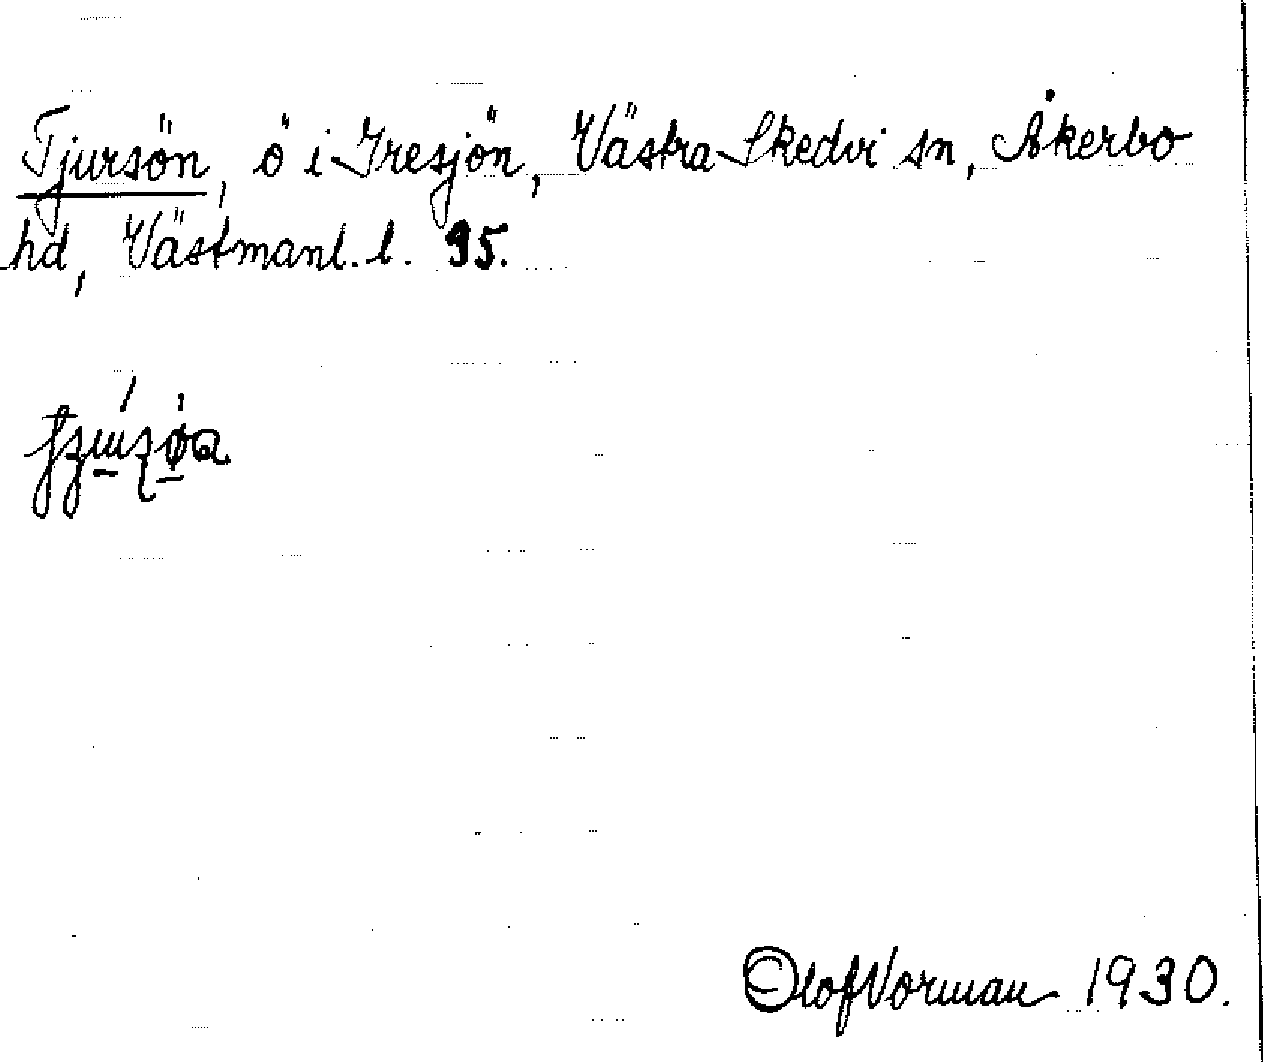 Tjursön, ö i Iresjön, Västra Skedvi sn, Åkerbo
hd, Västmanl. l. 95.
Olof Vorman 1930.